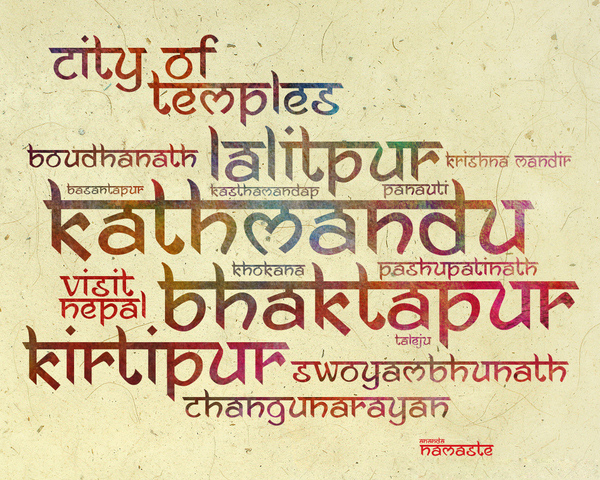 city of
temples
boudhanath lalitpur krishna mandir
basantapur kasthamandap panauti
kathmandu
khokana pashupatinath
visit
nepal
bhaktapur
taleju
kirtipur swoyambhunath
changunarayan
ananda
namaste